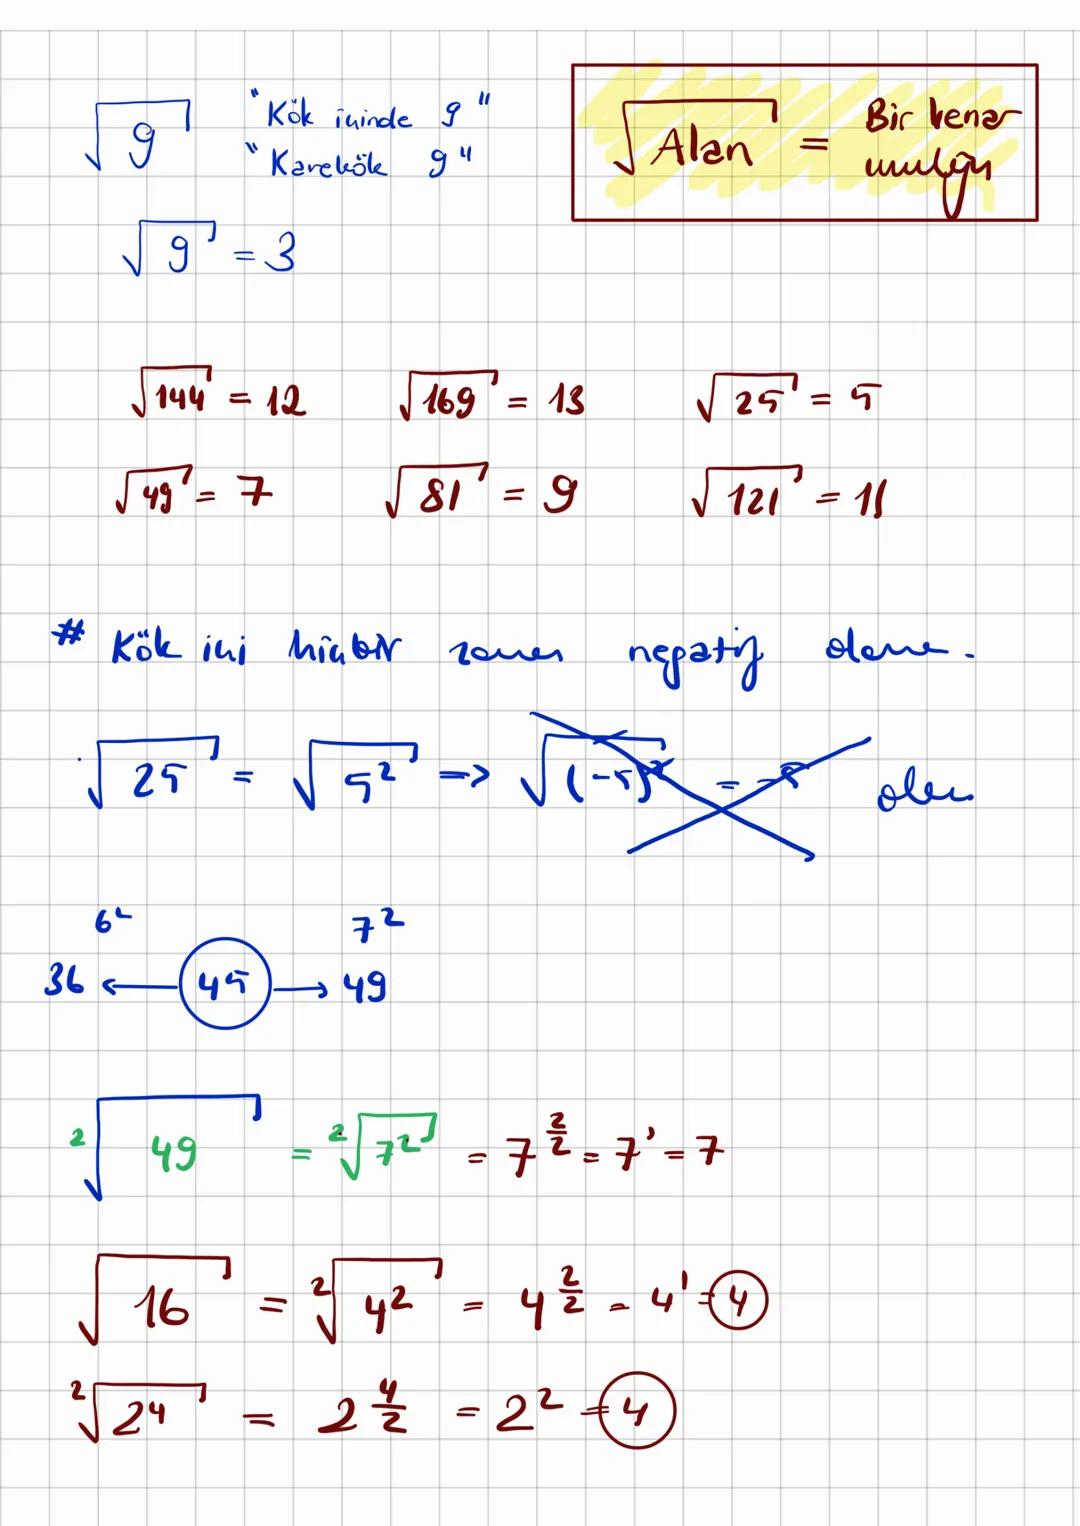 √9 "Kök içinde 9"
"Karekök 9"
√Alan = Bir kenar
uzunluğu
√9 = 3
√144 = 12 √169 = 13 √25 = 5
√49 = 7 √81 = 9 √121 = 11
# Kök içi hiçbir zaman negatif olamaz.
√25 = √5² => √(-5)² = -5
6² 7²
36 ← 45 → 49
²√49 = ²√7² = 7^(2/2) = 7¹ = 7
√16 = ²√4² = 4^(2/2) = 4¹ = 4
²√2⁴ = 2^(4/2) = 2² = 4